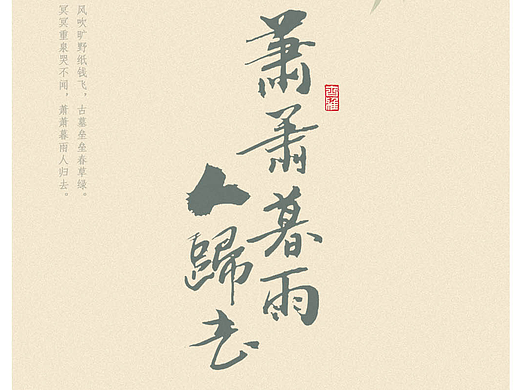 蕭蕭暮雨
人歸去
风吹旷野纸钱飞，古墓垒垒春草绿。
冥冥重泉哭不闻，萧萧暮雨人归去。